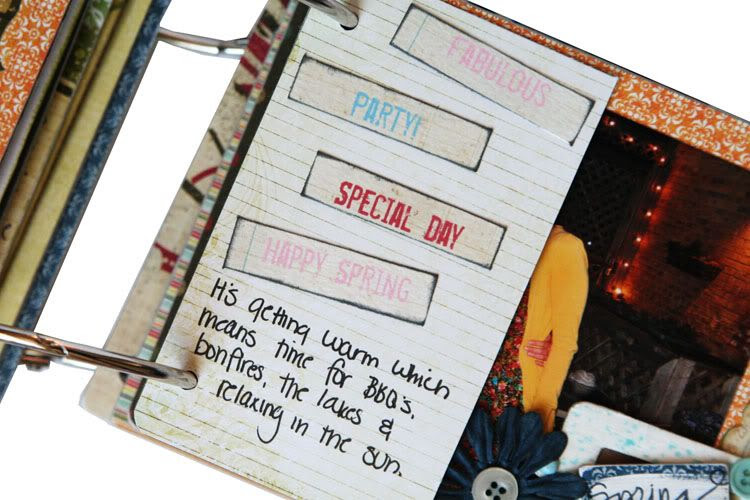 FABULOUS
PARTY!
SPECIAL DAY
HAPPY SPRING
It's getting warm which
means time for BBQ's,
bonfires, the lakes &
relaxing in the sun.
Spring